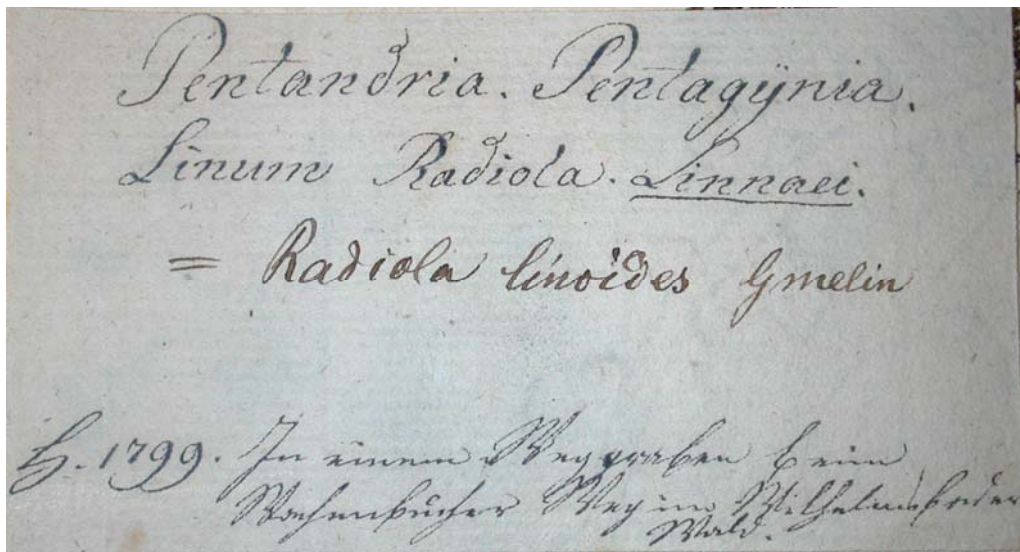 Pentandria. Pentagÿnia.
Linum Radiola. Linnaei.
= Radiola linoides Gmelin
H. 1799. In einem Weggraben beim
Wachenbucher Weg im Wilhelmsbader
Wald.